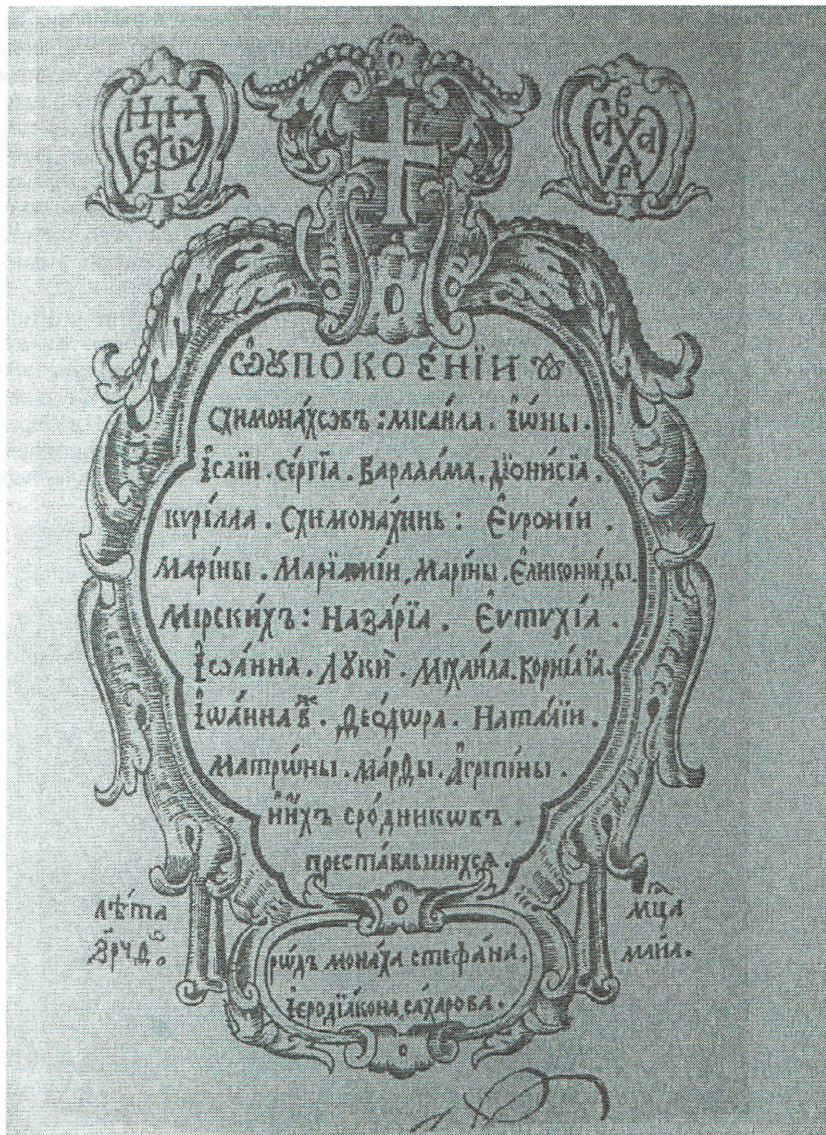 Ѡ҆ УПОКОЕ́НЇИ
Схимона́хѡвъ : Мїсаи́ла . І҆ѡ́ны .
І҆са́їи . Се́ргїа . Варлаа́ма . Дїони́сїа .
Кѵрі́лла . Схимона́хинь : Е҆ѵро́нїи .
Мари́ны . Марїа́мїи . Мари́ны . Е҆ликони́ды .
Мїрски́хъ : Наза́рїа . Е҆ѵтѵхі́а .
І҆ѡа́нна . Лꙋки̑ . Мїхаи́ла . Корни́лїа .
І҆ѡа́нна в҃ж . Ѳео́дѡра . Ната́лїи .
Матрѡ́ны . Ма́рѳы . А҆грїпі́ны .
и҆ и҆́хъ сро́дникѡвъ .
преста́вльшихсѧ .
лѣ́та
҂зрч҃д .
мц҃а
ма́їа .
рѡ́дъ мона́ха стефа́на .
і҆еродїа́кона са́харова .